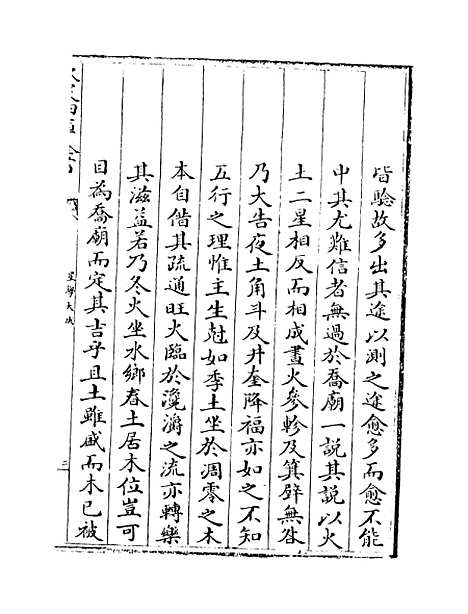 皆驗故多出其途以測之途愈多而愈不能
中其尤難信者無過於喬廟一說其說以火
土二星相反而相成晝火參軫及箕壁無咎
乃大吉夜土角斗及井奎降福亦如之不知
五行之理惟主生尅如季土坐於凋零之木
本自借其疏通旺火臨於瀺灂之流亦轉樂
其滋益若乃冬火坐水鄉春土居木位豈可
目為喬廟而定其吉乎且土雖盛而木已被
星學大成
三